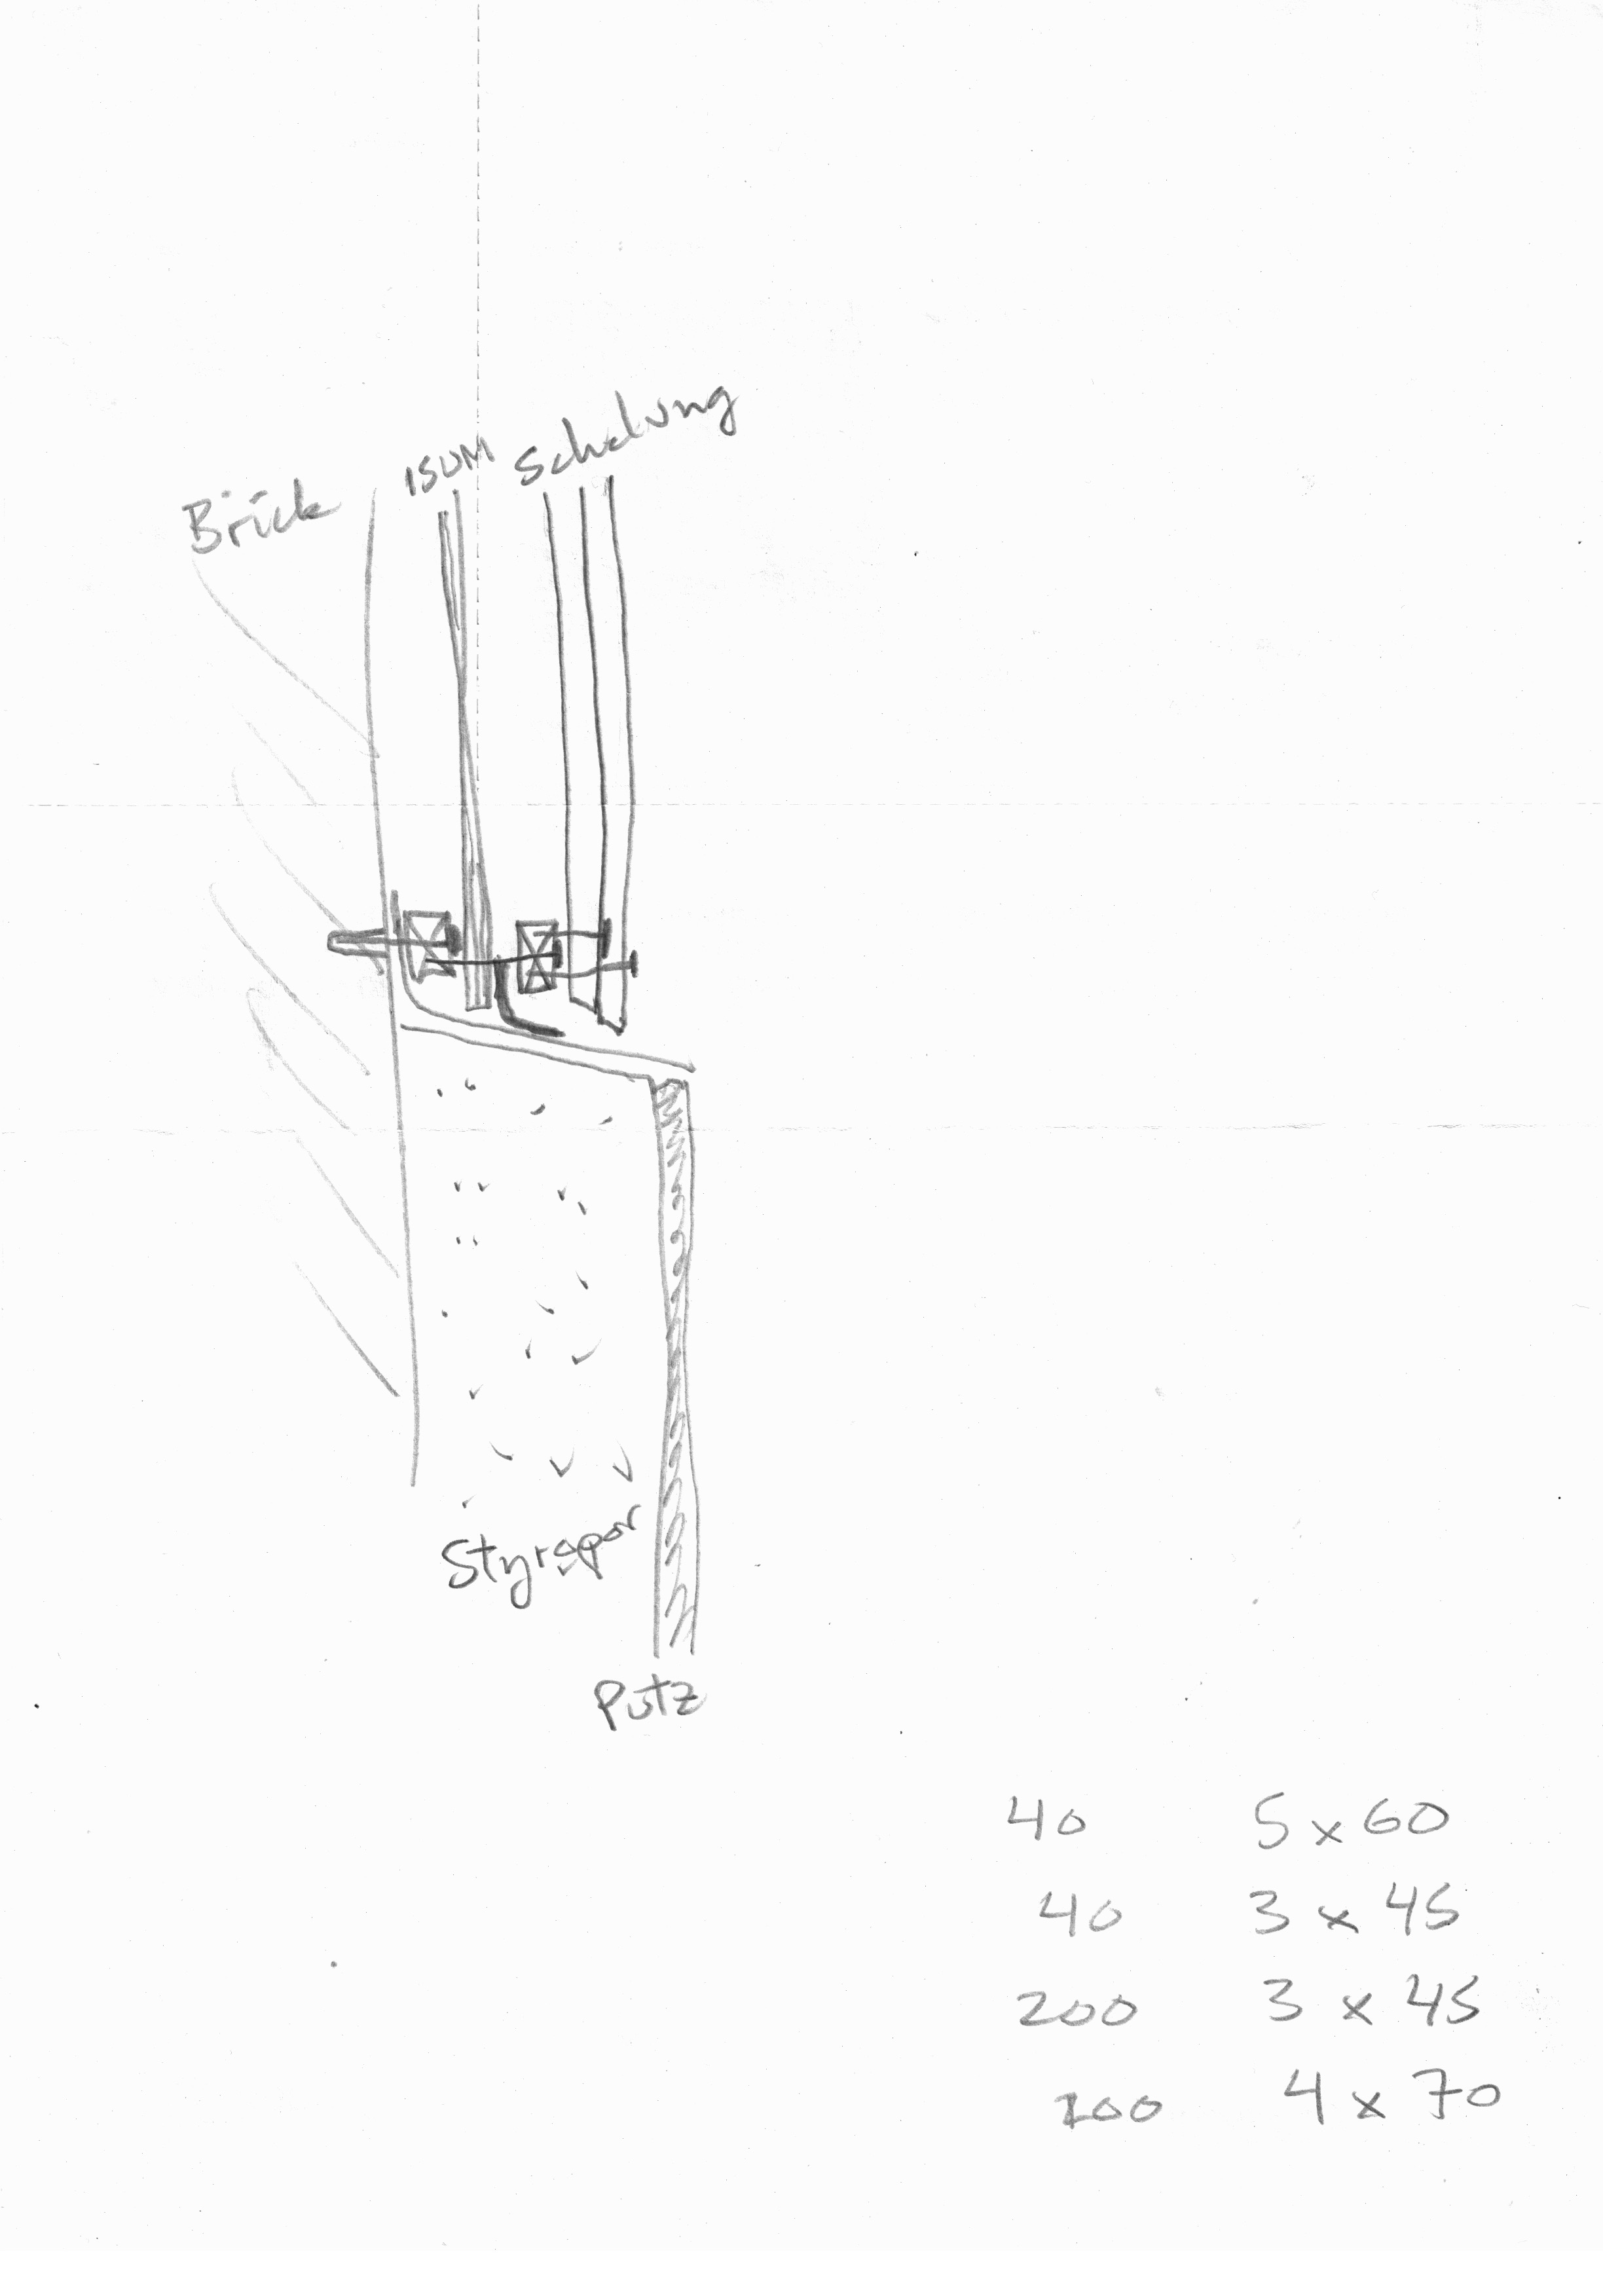 Brick
ISUM
Schalung
Styropor
Putz
40 5 x 60
40 3 x 45
200 3 x 45
200 4 x 70